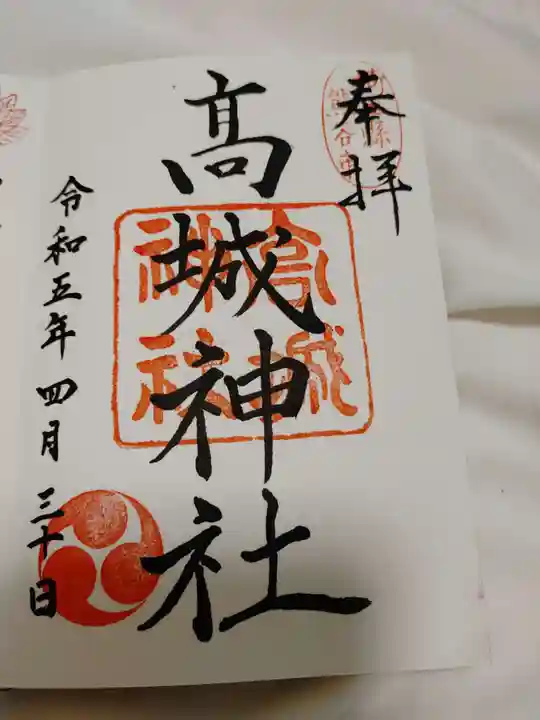 奉拝
髙城神社
髙城
神社
令和五年四月三十日